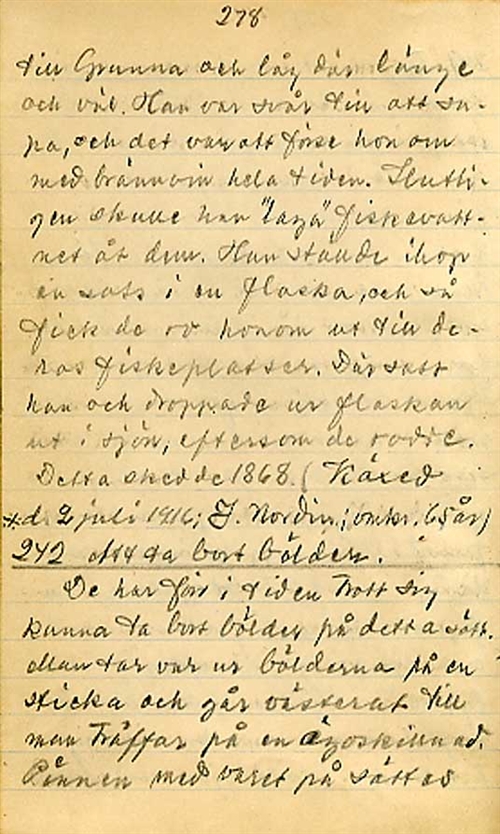 278
till Grunna och låg där länge
och väl. Han var svår till att su-
pa, och det var att förse honom
med brännvin hela tiden. Slutli-
gen skulle han "laga" fiskevatt-
net åt dem. Han ställde ihop
en sats i en flaska, och så
fick de ro honom ut till de-
ras fiskeplatser. Där satt
han och droppade ur flaskan
ut i sjön, eftersom de rodde.
Detta skedde 1868. (Växed
d. 2 juli 1916; J. Nordin; omkr. 65 år)
242 Att ta bort bölder.
De har förr i tiden trott sig
kunna ta bort bölder på detta sätt.
Man tar var ur bölderna på en
sticka och går västerut till
man träffar på en ägoskillnad.
Pinnen med varet på sättas